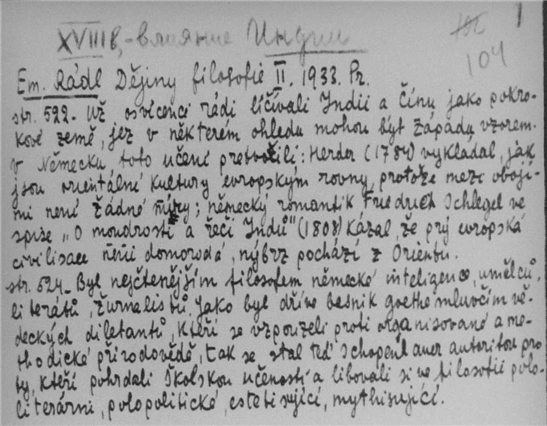 XVIII в, - влияние Индии
104
1
Em. Rádl Dějiny filosofie II. 1933. Pr.
str. 522. Už osvícenci rádi líčívali Indii a Čínu jako pokro-
kové země, jež v některém ohledu mohou být západu vzorem.
V Německu toto učení protvořili: Herder (1784) vykládal, jak
jsou orientálné kultury evropským rovny, protože mezi oboji-
mi není žádné; německý romantik Friedrich Schlegel ve
spise „O moudrosti a řeči Indů" (1808) kázal, že prý evropská
civilisace není domorodá, nýbrž pochází z Orientu.
str. 524. Byl nejčtenějším filosofem německé inteligence, umělců,
literátů, žurnalistů. Jako byl dříve básník goethe mluvčím vě-
deckých diletantů, kteří se vzpouzeli proti organisované a me-
thodické přírodovědě, tak se stal teď Schopenhauer autoritou pro
ty, kteří pohrdali školskou učeností a libovali si ve filosofii polo-
literární, polopolitické, estetisující, mythisující.